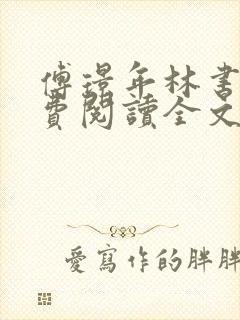 傅璟年林書
費閱讀全文
愛寫作的胖胖